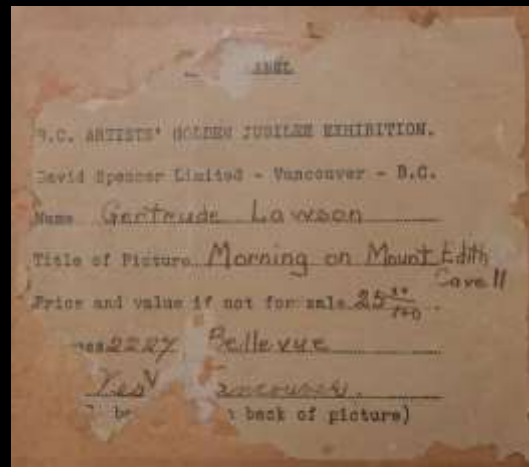 LABEL
B.C. ARTISTS' GOLDEN JUBILEE EXHIBITION.
David Spencer Limited - Vancouver - B.C.
Name Gertrude Lawson
Title of Picture Morning on Mount Edith
Cavell
Price and value if not for sale 25 xx/100.
2227 Bellevue
West Vancouver.
be back of picture)